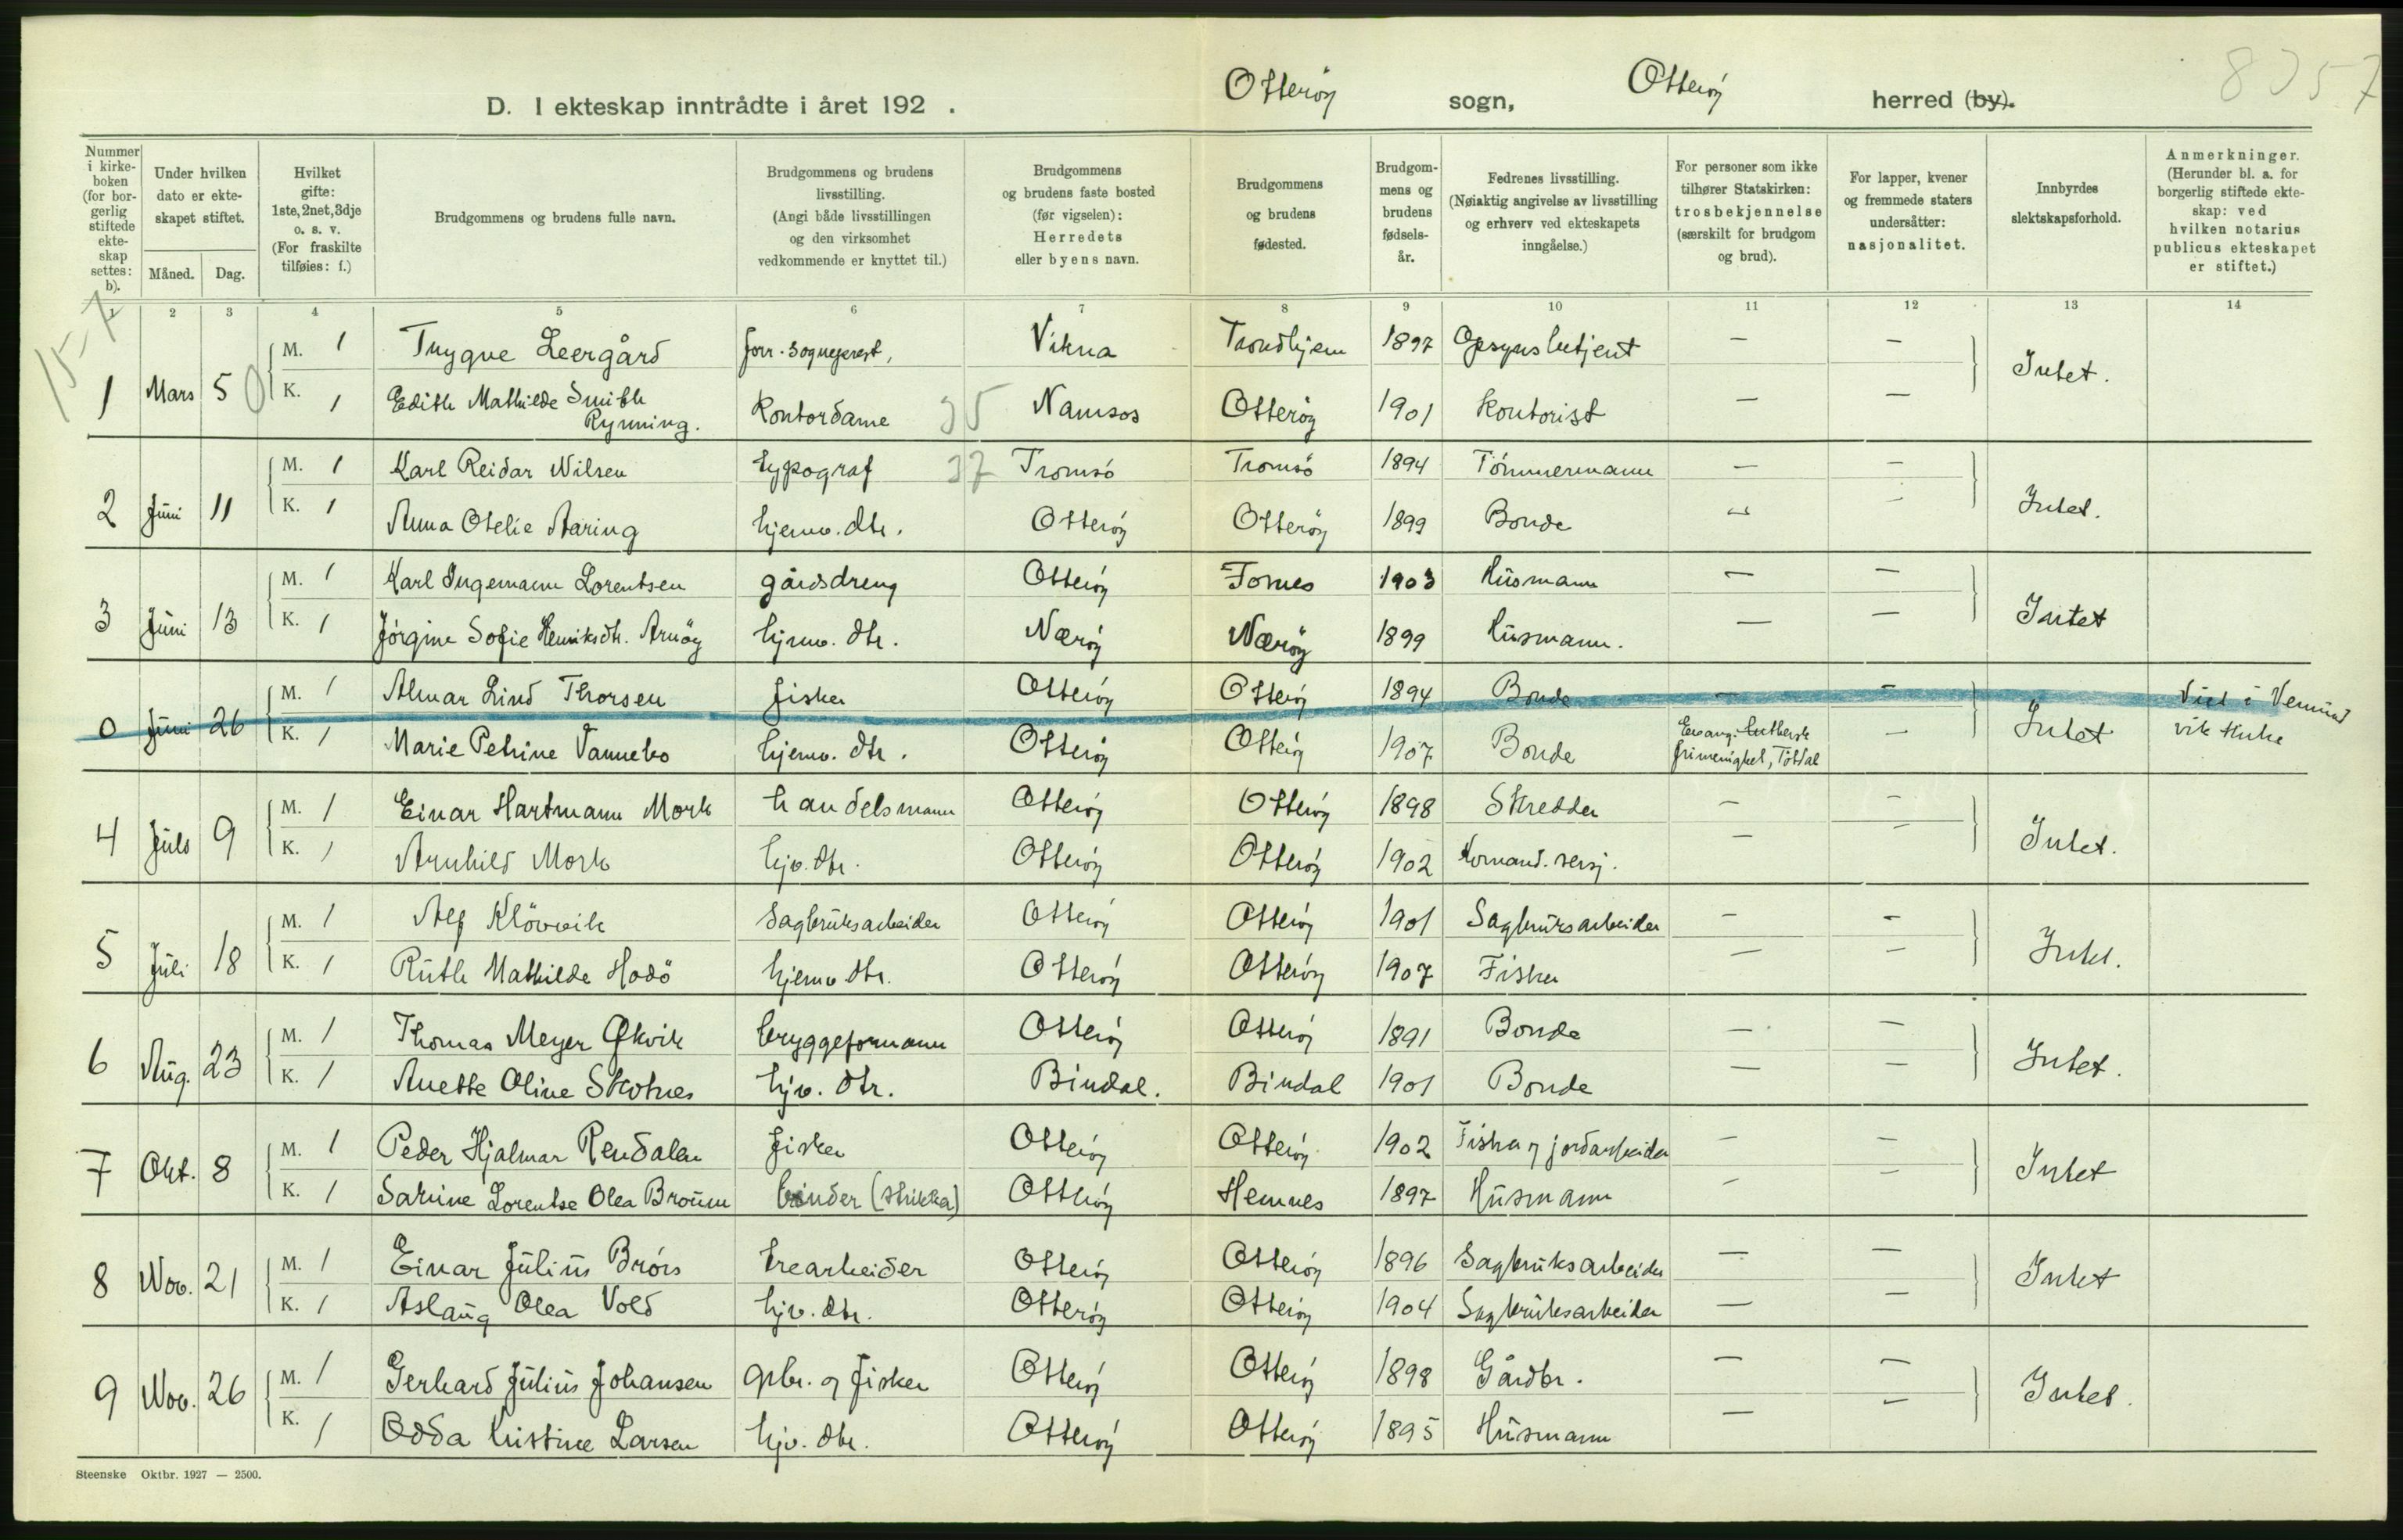 8357
D. I ekteskap inntrådte i året 192 . Otterøy sogn, Otterøy herred (by).
Nummer i kirke-boken (for bor-gerlig stiftede ekte-skap settes: b).
Under hvilken dato er ekte-skapet stiftet.
Måned. Dag.
Hvilket gifte: 1ste, 2net, 3dje o. s. v. (For fraskilte tilføies: f.)
Brudgommens og brudens fulle navn.
Brudgommens og brudens livsstilling. (Angi både livsstillingen og den virksomhet vedkommende er knyttet til.)
Brudgommens og brudens faste bosted (før vigselen): Herredets eller byens navn.
Brudgommens og brudens fødested.
Brudgom-mens og brudens fødsels-år.
Fedrenes livsstilling. (Nøiaktig angivelse av livsstilling og erhverv ved ekteskapets inngåelse.)
For personer som ikke tilhører Statskirken: trosbekjennelse (særskilt for brudgom og brud).
For lapper, kvener og fremmede staters undersåtter: nasjonalitet.
Innbyrdes slektskapsforhold.
Anmerkninger. (Herunder bl. a. for borgerlig stiftede ekte-skap: ved hvilken notarius publicus ekteskapet er stiftet.)
1 2 3 4 5 6 7 8 9 10 11 12 13 14
15-7
1 Mars 5 M. 1 Trygve Leergård forr. sogneprest, Vikna Trondhjem 1897 Opsynsbetjent — — Intet.
K. 1 Edith Mathilde Smith Rynning. Kontordame 35 Namsos Otterøy 1901 Kontorist — —
2 Juni 11 M. 1 Karl Reidar Nilsen typograf 37 Tromsö Tromsö 1894 Tömmermann — — Intet.
K. 1 Anna Otelie Aaring hjemv. dtr. Otteröy Otteröy 1899 Bonde " —
3 Juni 13 M. 1 Karl Ingemann Lorentsen gårdsdreng Otteröy Fosnes 1903 Husmann — — Intet
K. 1 Jörgine Sofie Henriksdtr. Arnöy hjemv. dtr. Næröy Næröy 1899 Husmann. — —
0 Juni 26 M. 1 Almar Lind Thorsen fisker Otteröy Otteröy 1894 Bonde — — Intet Viet i Vemund
K. 1 Marie Petrine Vannebo hjemv. dtr. Otteröy Otteröy 1907 Bonde Evang. Luthersk frimenighet, Totdal — vik kirke
4 Juli 9 M. 1 Einar Hartmann Mork handelsmann Otteröy Otteröy 1898 Skredder — — Intet.
K. 1 Arnhild Mork hjv. dtr. Otteröy Otteröy 1902 Komand. sersj. — —
5 Juli 18 M. 1 Alf Klövvik Sagbruksarbeider Otteröy Otteröy 1901 Sagbruksarbeider — — Intet.
K. 1 Ruth Mathilde Hodö hjemv dtr. Otteröy Otteröy 1907 Fisker — —
6 Aug. 23 M. 1 Thomas Meyer Økvik bryggeformann Otteröy Otteröy 1891 Bonde — — Intet.
K. 1 Anette Oline Skotnes hjv. dtr. Bindal. Bindal 1901 Bonde — —
7 Okt. 8 M. 1 Peder Hjalmar Rendalen fisker Otteröy Otteröy 1902 Fisker og jordarbeider — — Intet
K. 1 Sarine Lorentse Olea Broum binder (strikka) Otteröy Hemnes 1897 Husmann — —
8 Nov. 21 M. 1 Einar Julius Brörs trearbeider Otteröy Otteröy 1896 Sagbruksarbeider — — Intet
K. 1 Aslaug Olea Vold hjv. dtr. Otteröy Otteröy 1904 Sagbruksarbeider — —
9 Nov. 26 M. 1 Gerhard Julius Johansen gbr. og fisker Otteröy Otteröy 1898 Gårdbr. — — Intet.
K. 1 Odda Kristine Larsen hjv. dtr. Otteröy Otteröy 1895 Husmann — —
Steenske Oktbr. 1927 — 2500.